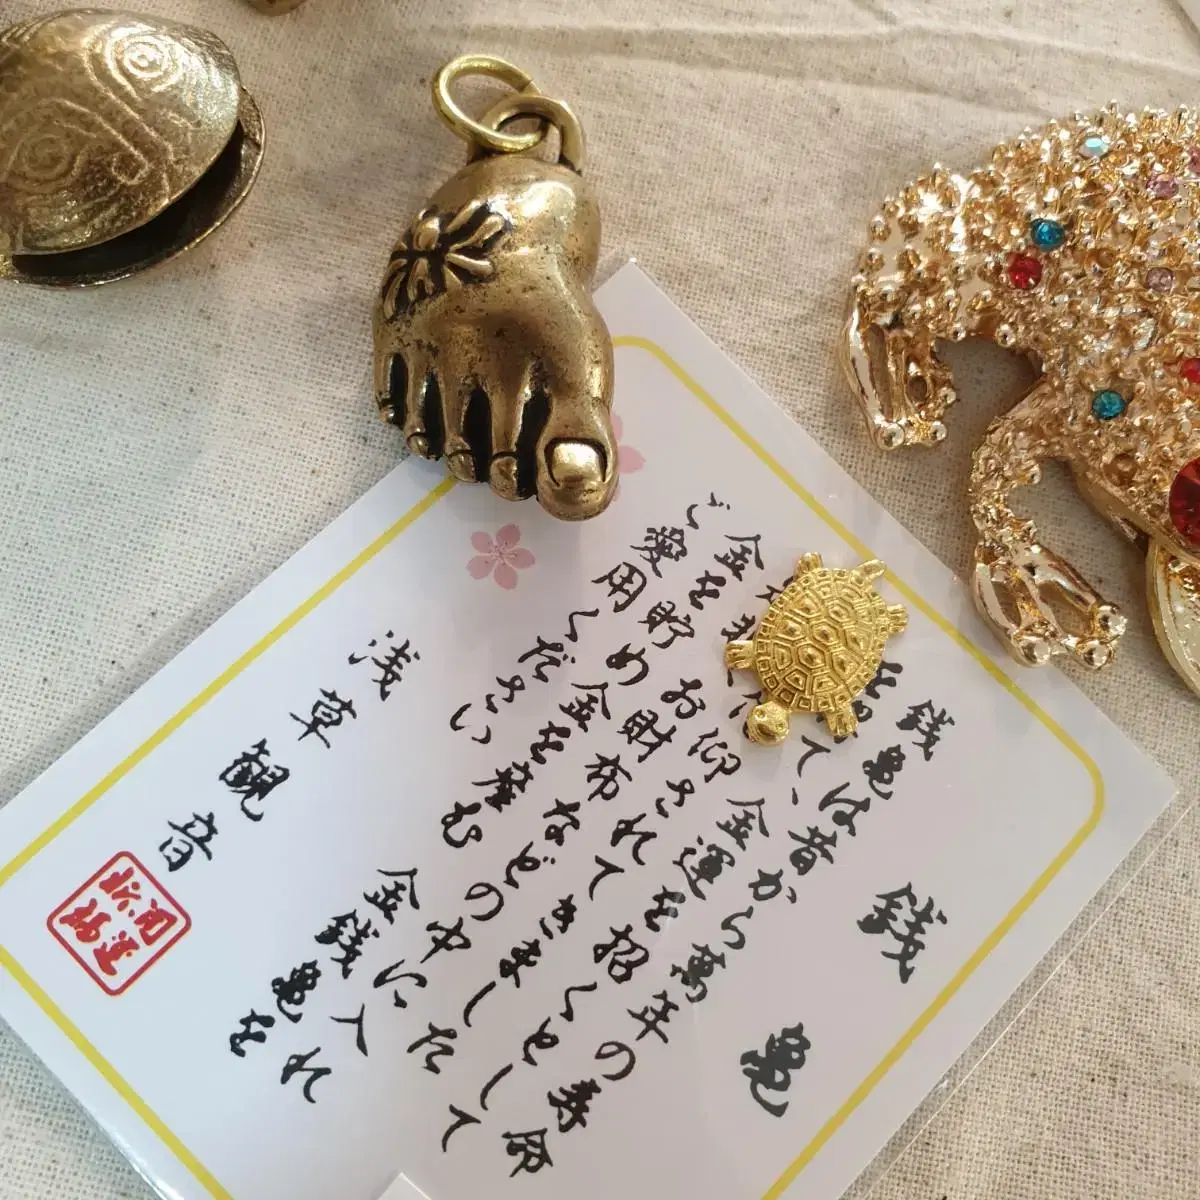 銭亀
銭亀は昔から萬年の寿命
を て、金運を招くとして
仰されてきました
お財布などの中に入れ
金を貯め金を産む金銭亀を
ご愛用ください
浅草観音